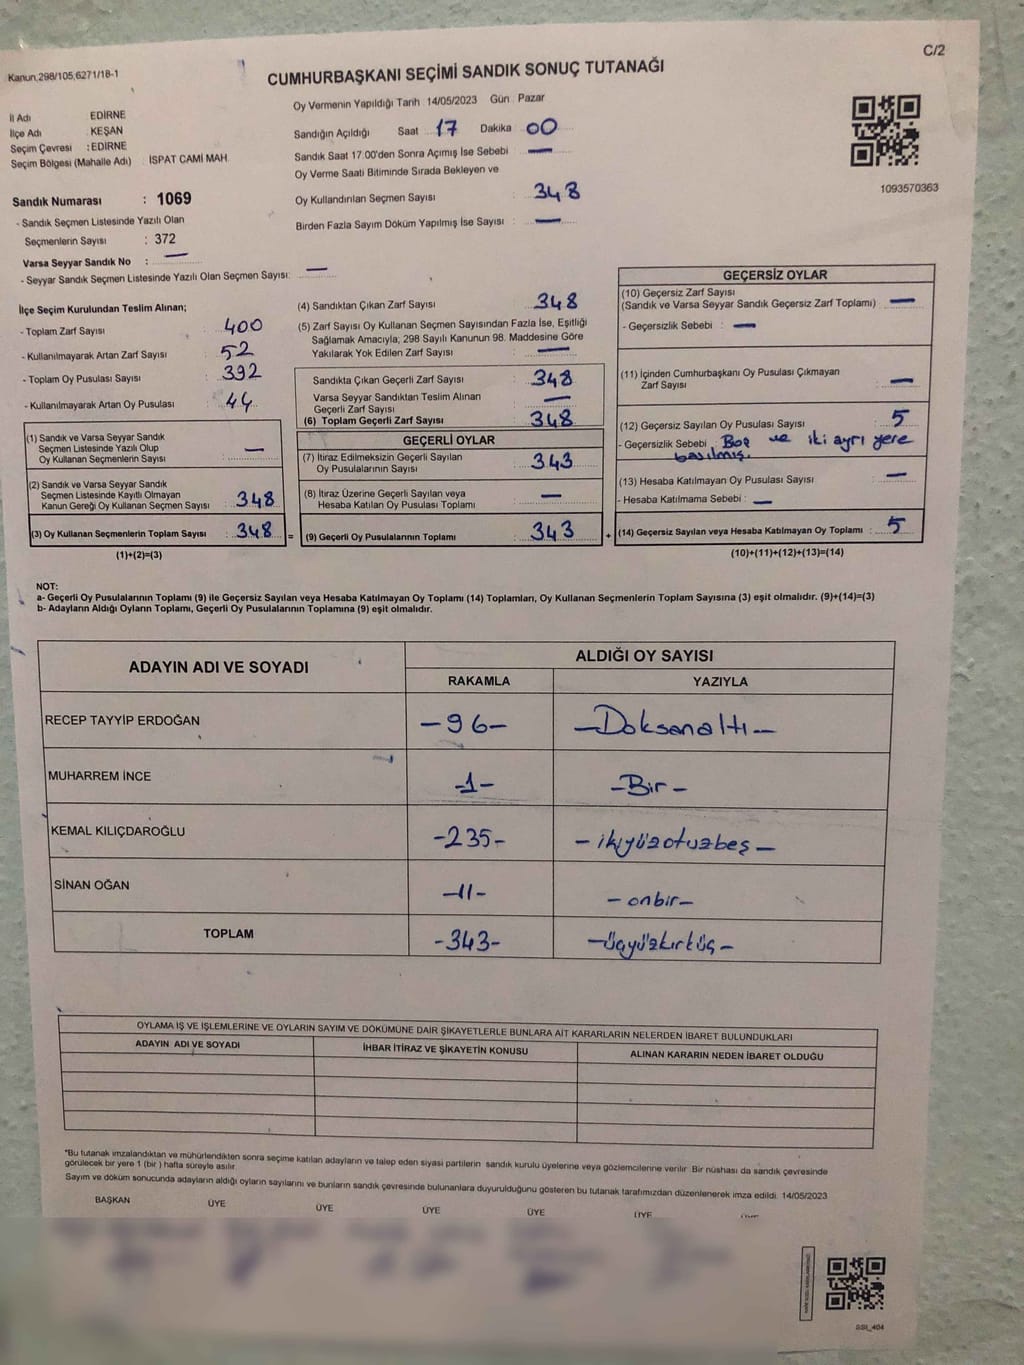 C/2
Kanun;298/105,6271/18-1
CUMHURBAŞKANI SEÇİMİ SANDIK SONUÇ TUTANAĞI
Oy Vermenin Yapıldığı Tarih 14/05/2023 Gün : Pazar
İl Adı EDİRNE
İlçe Adı KEŞAN
Seçim Çevresi : EDİRNE
Seçim Bölgesi (Mahalle Adı) : İSPAT CAMİ MAH.
Sandık Numarası : 1069
- Sandık Seçmen Listesinde Yazılı Olan
Seçmenlerin Sayısı : 372
Varsa Seyyar Sandık No : —
- Seyyar Sandık Seçmen Listesinde Yazılı Olan Seçmen Sayısı: —
Sandığın Açıldığı Saat 17 Dakika 00
Sandık Saat 17.00'den Sonra Açımış İse Sebebi —
Oy Verme Saati Bitiminde Sırada Bekleyen ve
Oy Kullandırılan Seçmen Sayısı : 348
Birden Fazla Sayım Döküm Yapılmış İse Sayısı : —
1093570363
İlçe Seçim Kurulundan Teslim Alınan;
- Toplam Zarf Sayısı : 400
- Kullanılmayarak Artan Zarf Sayısı : 52
- Toplam Oy Pusulası Sayısı : 392
- Kullanılmayarak Artan Oy Pusulası : 44
(1) Sandık ve Varsa Seyyar Sandık
Seçmen Listesinde Yazılı Olup
Oy Kullanan Seçmenlerin Sayısı : —
(2) Sandık ve Varsa Seyyar Sandık
Seçmen Listesinde Kayıtlı Olmayan
Kanun Gereği Oy Kullanan Seçmen Sayısı : 348
(3) Oy Kullanan Seçmenlerin Toplam Sayısı : 348 =
(1)+(2)=(3)
(4) Sandıktan Çıkan Zarf Sayısı : 348
(5) Zarf Sayısı Oy Kullanan Seçmen Sayısından Fazla İse, Eşitliği
Sağlamak Amacıyla; 298 Sayılı Kanunun 98. Maddesine Göre
Yakılarak Yok Edilen Zarf Sayısı : —
Sandıkta Çıkan Geçerli Zarf Sayısı : 348
Varsa Seyyar Sandıktan Teslim Alınan
Geçerli Zarf Sayısı : —
(6) Toplam Geçerli Zarf Sayısı : 348
GEÇERLİ OYLAR
(7) İtiraz Edilmeksizin Geçerli Sayılan
Oy Pusulalarının Sayısı : 343
(8) İtiraz Üzerine Geçerli Sayılan veya
Hesaba Katılan Oy Pusulası Toplamı : —
(9) Geçerli Oy Pusulalarının Toplamı : 343 +
GEÇERSİZ OYLAR
(10) Geçersiz Zarf Sayısı
(Sandık ve Varsa Seyyar Sandık Geçersiz Zarf Toplamı) : —
- Geçersizlik Sebebi : —
(11) İçinden Cumhurbaşkanı Oy Pusulası Çıkmayan
Zarf Sayısı : —
(12) Geçersiz Sayılan Oy Pusulası Sayısı : 5
- Geçersizlik Sebebi : Boş ve iki ayrı yere
basılmış.
(13) Hesaba Katılmayan Oy Pusulası Sayısı : —
- Hesaba Katılmama Sebebi : —
(14) Geçersiz Sayılan veya Hesaba Katılmayan Oy Toplamı : 5
(10)+(11)+(12)+(13)=(14)
NOT:
a- Geçerli Oy Pusulalarının Toplamı (9) ile Geçersiz Sayılan veya Hesaba Katılmayan Oy Toplamı (14) Toplamları, Oy Kullanan Seçmenlerin Toplam Sayısına (3) eşit olmalıdır. (9)+(14)=(3)
b- Adayların Aldığı Oyların Toplamı, Geçerli Oy Pusulalarının Toplamına (9) eşit olmalıdır.
ADAYIN ADI VE SOYADI
ALDIĞI OY SAYISI
RAKAMLA YAZIYLA
RECEP TAYYİP ERDOĞAN -96- -Doksanaltı-
MUHARREM İNCE -1- -Bir-
KEMAL KILIÇDAROĞLU -235- -ikiyüzotuzbeş-
SİNAN OĞAN -11- -onbir-
TOPLAM -343- -üçyüzkırküç-
OYLAMA İŞ VE İŞLEMLERİNE VE OYLARIN SAYIM VE DÖKÜMÜNE DAİR ŞİKAYETLERLE BUNLARA AİT KARARLARIN NELERDEN İBARET BULUNDUKLARI
ADAYIN ADI VE SOYADI İHBAR İTİRAZ VE ŞİKAYETİN KONUSU ALINAN KARARIN NEDEN İBARET OLDUĞU
*Bu tutanak imzalandıktan ve mühürlendikten sonra seçime katılan adayların ve talep eden siyasi partilerin sandık kurulu üyelerine veya gözlemcilerine verilir. Bir nüshası da sandık çevresinde
görülecek bir yere 1 (bir ) hafta süreyle asılır.
Sayım ve döküm sonucunda adayların aldığı oyların sayılarını ve bunların sandık çevresinde bulunanlara duyurulduğunu gösteren bu tutanak tarafımızdan düzenlenerek imza edildi. 14/05/2023
BAŞKAN ÜYE ÜYE ÜYE ÜYE ÜYE
SSI_404